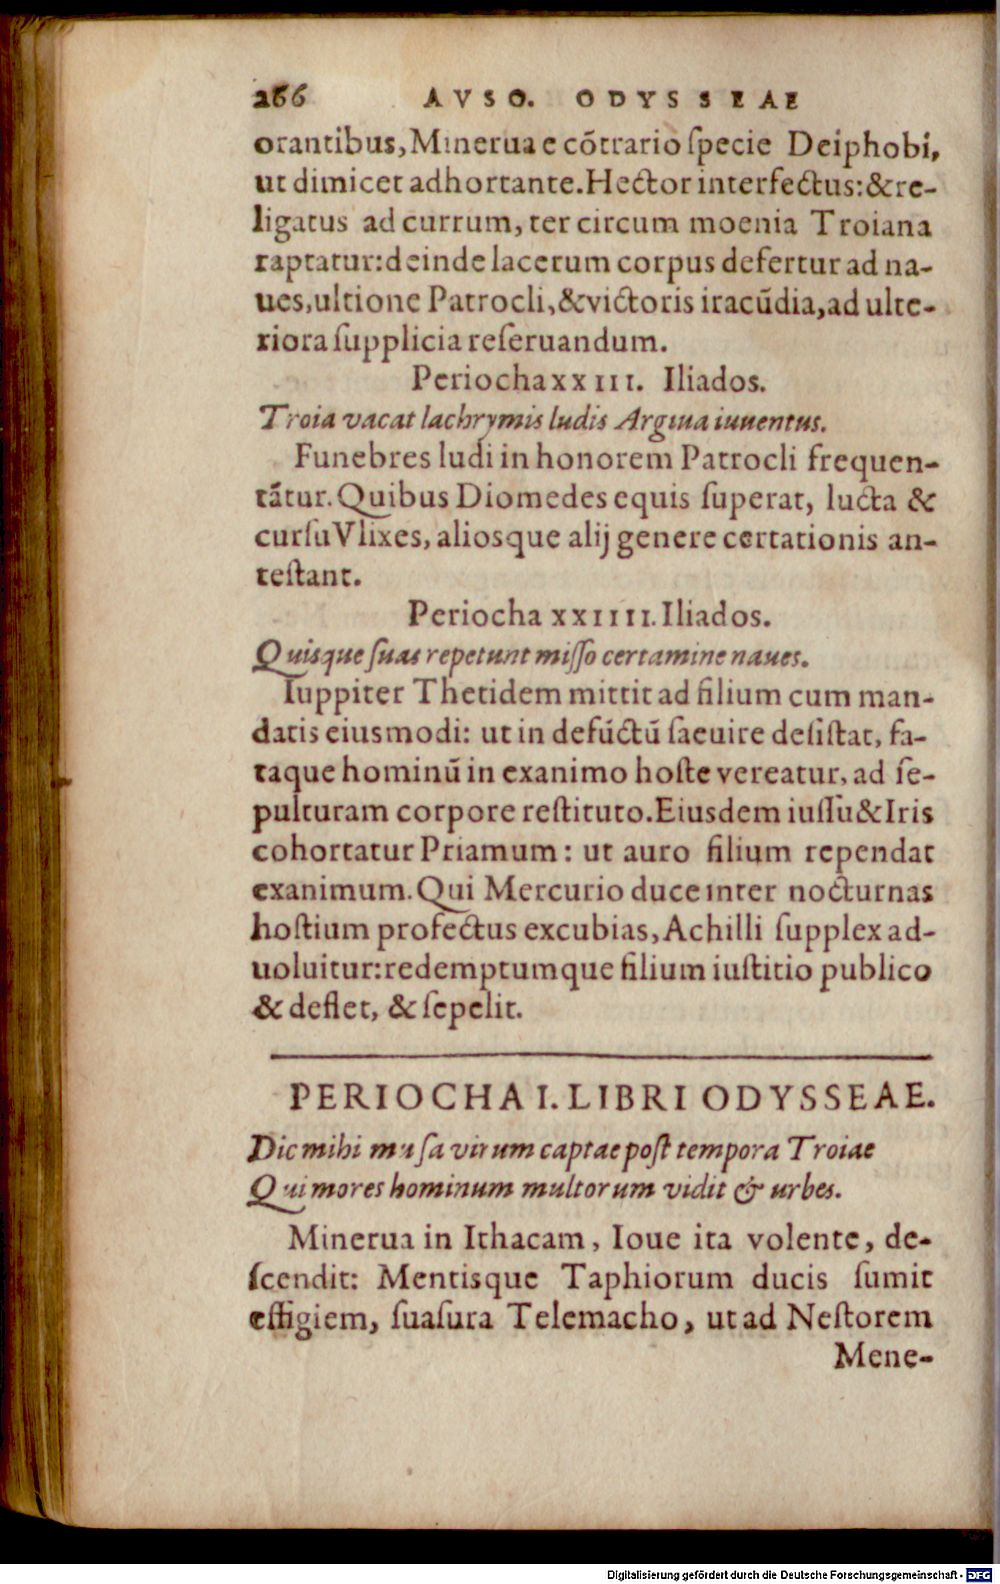 266 AVSO. ODYSSEAE
orantibus, Mineruae cõtrario ſpecie Deiphobi,
ut dimicet adhortante. Hector interfectus: & re-
ligatus ad currum, ter circum moenia Troiana
raptatur: deinde lacerum corpus defertur ad na-
ues, ultione Patrocli, & victoris iracũdia, ad ulte-
riora ſupplicia reſeruandum.
Periocha XXIII. Iliados.
Troia vacat lachrymis ludis Argiua iuuentus.
Funebres ludi in honorem Patrocli frequen-
tãtur. Quibus Diomedes equis ſuperat, lucta &
curſu Vlixes, aliosque alij genere certationis an-
teſtant.
Periocha XXIIII. Iliados.
Quisque ſuas repetunt miſſo certamine naues.
Iuppiter Thetidem mittit ad filium cum man-
datis eiusmodi: ut in defúctũ ſaeuire deſiſtat, fa-
taque hominũ in exanimo hoſte vereatur, ad ſe-
pulturam corpore reſtituto. Eiusdem iuſſu & Iris
cohortatur Priamum: ut auro filium rependat
exanimum. Qui Mercurio duce inter nocturnas
hoſtium profectus excubias, Achilli ſupplex ad-
uoluitur: redemptumque filium iuſtitio publico
& deflet, & ſepelit.
PERIOCHA I. LIBRI ODYSSEAE.
Dic mihi muſa virum captae poſt tempora Troiae
Qui mores hominum multorum vidit & urbes.
Minerua in Ithacam, Ioue ita volente, de-
ſcendit: Mentisque Taphiorum ducis ſumit
effigiem, ſuaſura Telemacho, ut ad Neſtorem
Mene-
Digitalisierung gefördert durch die Deutsche Forschungsgemeinschaft - DFG